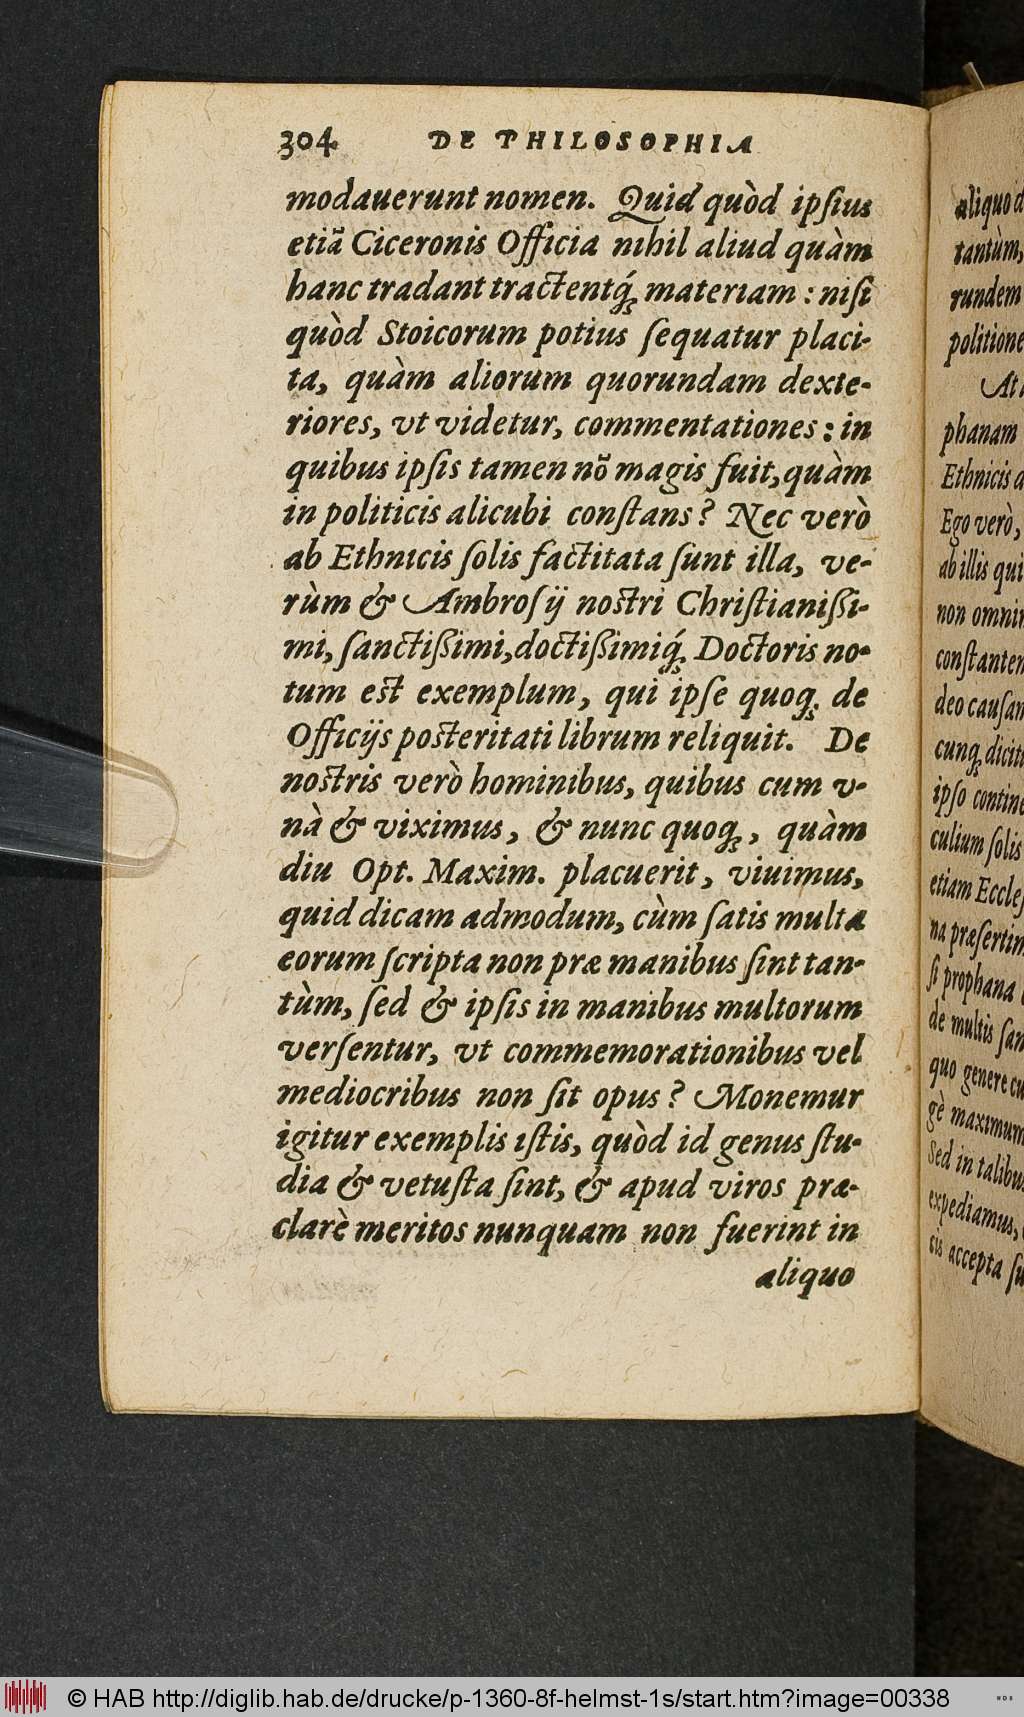 304 DE PHILOSOPHIA
modauerunt nomen. Quid quòd ipſius
etiã Ciceronis Officia nihil aliud quàm
hanc tradant tractentq́ꝫ materiam : niſi
quòd Stoicorum potius ſequatur placi-
ta, quàm aliorum quorundam dexte-
riores, vt videtur, commentationes : in
quibus ipſis tamen nõ magis fuit, quàm
in politicis alicubi conſtans? Nec verò
ab Ethnicis ſolis factitata ſunt illa, ve-
rùm & Ambroſij noſtri Chriſtianiſſi-
mi, ſanctiſſimi, doctiſſimiq́ꝫ Doctoris no-
tum eſt exemplum, qui ipſe quoqꝫ de
Officijs poſteritati librum reliquit. De
noſtris verò hominibus, quibus cum v-
nà & viximus, & nunc quoqꝫ, quàm
diu Opt. Maxim. placuerit, viuimus,
quid dicam admodum, cùm ſatis multa
eorum ſcripta non præ manibus ſint tan-
tùm, ſed & ipſis in manibus multorum
verſentur, vt commemorationibus vel
mediocribus non ſit opus? Monemur
igitur exemplis iſtis, quòd id genus ſtu-
dia & vetuſta ſint, & apud viros præ-
clarè meritos nunquam non fuerint in
aliquo
aliquo d
tantùm,
rundem
politione
At
phanam
Ethnicis a
Ego verò,
ab illis qui
non omnin
conſtanten
deo cauſam
cunqꝫ dicit
ipſo contine
culium ſolis
etiam Eccleſ
na præſertim
ſi prophana
de multis ſan
quo genere cu
gè maximum
Sed in talibus
expediamus,
cis accepta ſu
© HAB http://diglib.hab.de/drucke/p-1360-8f-helmst-1s/start.htm?image=00338